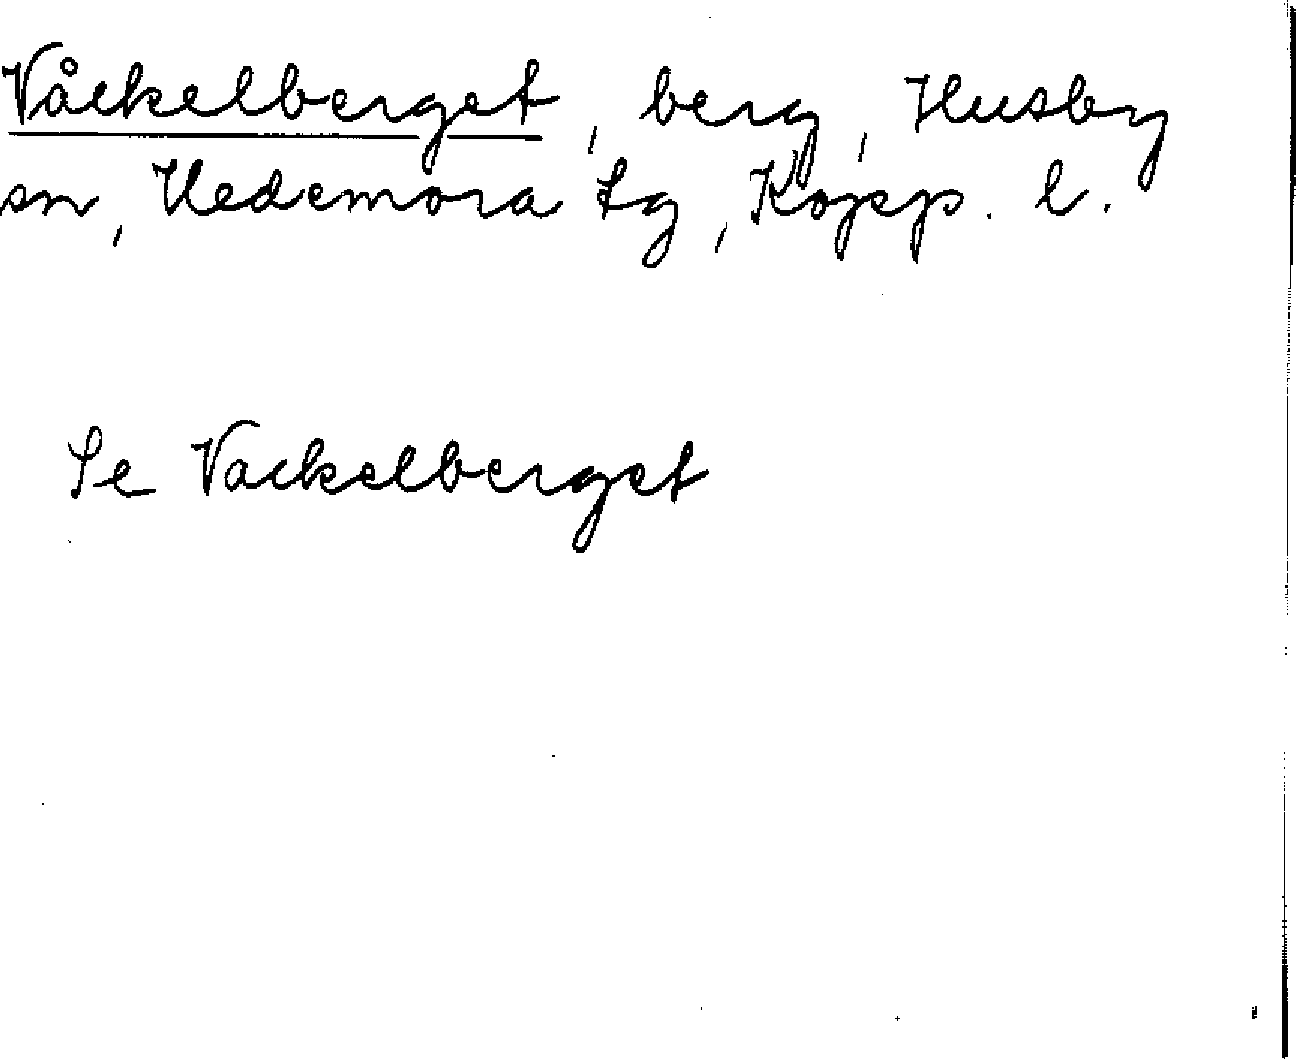 Våckelberget, berg, Husby
sn, Hedemora tg, Kopp. l.
Se Vackelberget